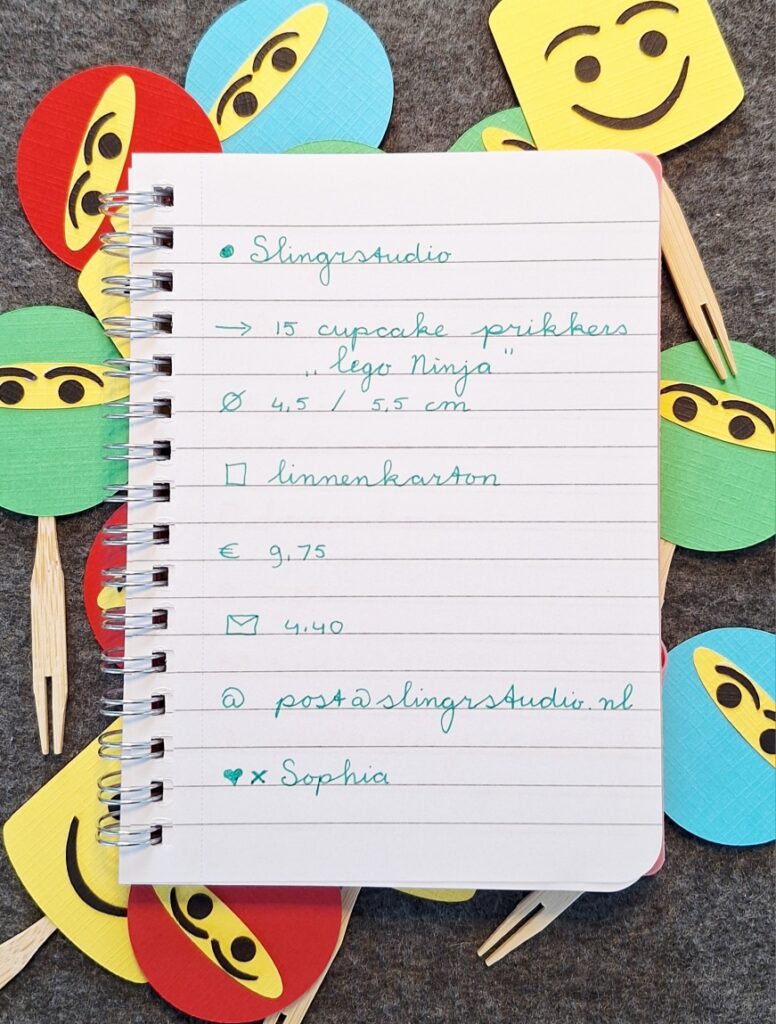 • Slingrstudio
→ 15 cupcake prikkers
„lego Ninja"
Ø 4,5 / 5,5 cm
□ linnenkarton
€ 9,75
✉ 4.40
@ post@slingrstudio.nl
♥ x Sophia